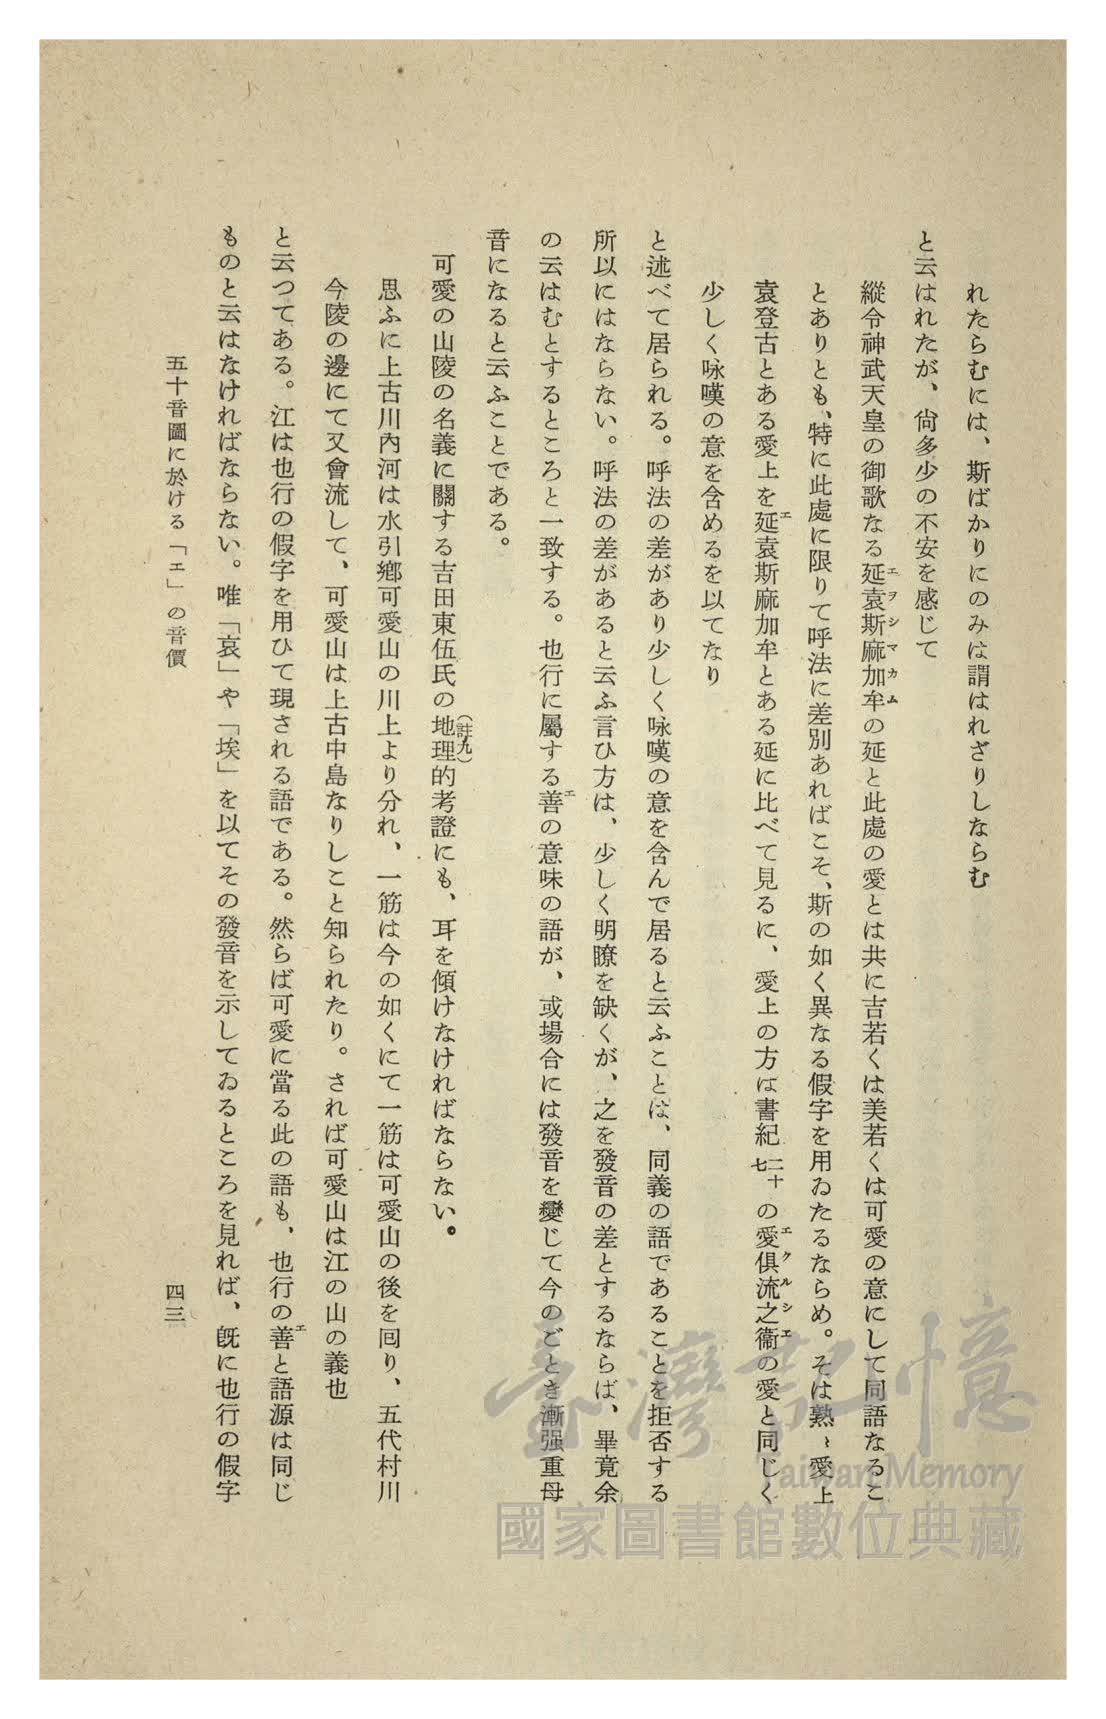 れたらむには、斯ばかりにのみは謂はれざりしならむ
と云はれたが、尙多少の不安を感じて
縱令神武天皇の御歌なる延袁斯麻加牟の延と此處の愛とは共に吉若くは美若くは可愛の意にして同語なるこ
エヲシマカム
とありとも、特に此處に限りて呼法に差別あればこそ、斯の如く異なる假字を用ゐたるならめ。そは熟〻愛上
袁登古とある愛上を延袁斯麻加牟とある延に比べて見るに、愛上の方は書紀二十七の愛倶流之衞の愛と同じく
エ
エクルシエ
少しく咏嘆の意を含めるを以てなり
と述べて居られる。呼法の差があり少しく咏嘆の意を含んで居ると云ふことは、同義の語であることを拒否する
所以にはならない。呼法の差があると云ふ言ひ方は、少しく明瞭を缺くが、之を發音の差とするならば、畢竟余
の云はむとするところと一致する。也行に屬する善の意味の語が、或場合には發音を變じて今のごとき漸强重母
エ
音になると云ふことである。
可愛の山陵の名義に關する吉田東伍氏の地理的考證にも、耳を傾けなければならない。
(註九)
思ふに上古川內河は水引鄕可愛山の川上より分れ、一筋は今の如くにて一筋は可愛山の後を囘り、五代村川
今陵の邊にて又會流して、可愛山は上古中島なりしこと知られたり。されば可愛山は江の山の義也
と云つてある。江は也行の假字を用ひて現される語である。然らば可愛に當る此の語も、也行の善と語源は同じ
エ
ものと云はなければならない。唯「哀」や「埃」を以てその發音を示してゐるところを見れば、旣に也行の假字
五十音圖に於ける「エ」の音價
四三
臺灣記憶
Taiwan Memory
國家圖書館數位典藏